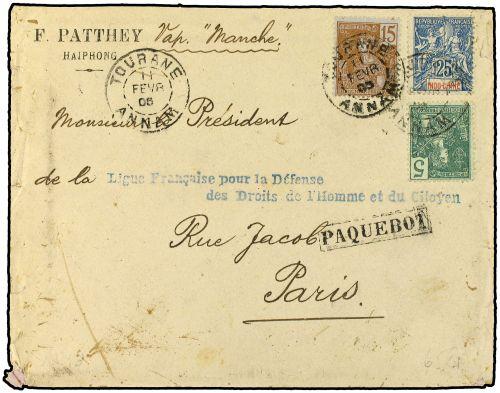 F. PATTHEY Vap. "Manche"
HAIPHONG
TOURANE
11
FEVR
05
ANNAM
15
TOURANE
11
FEVR
05
ANNAM
REPUBLIQUE FRANÇAISE
25
INDO-CHINE
ANNAM
5
Monsieur Président
de la Ligue Française pour la Défense
des Droits de l'Homme et du Citoyen
Rue Jacob
PAQUEBOT
Paris.